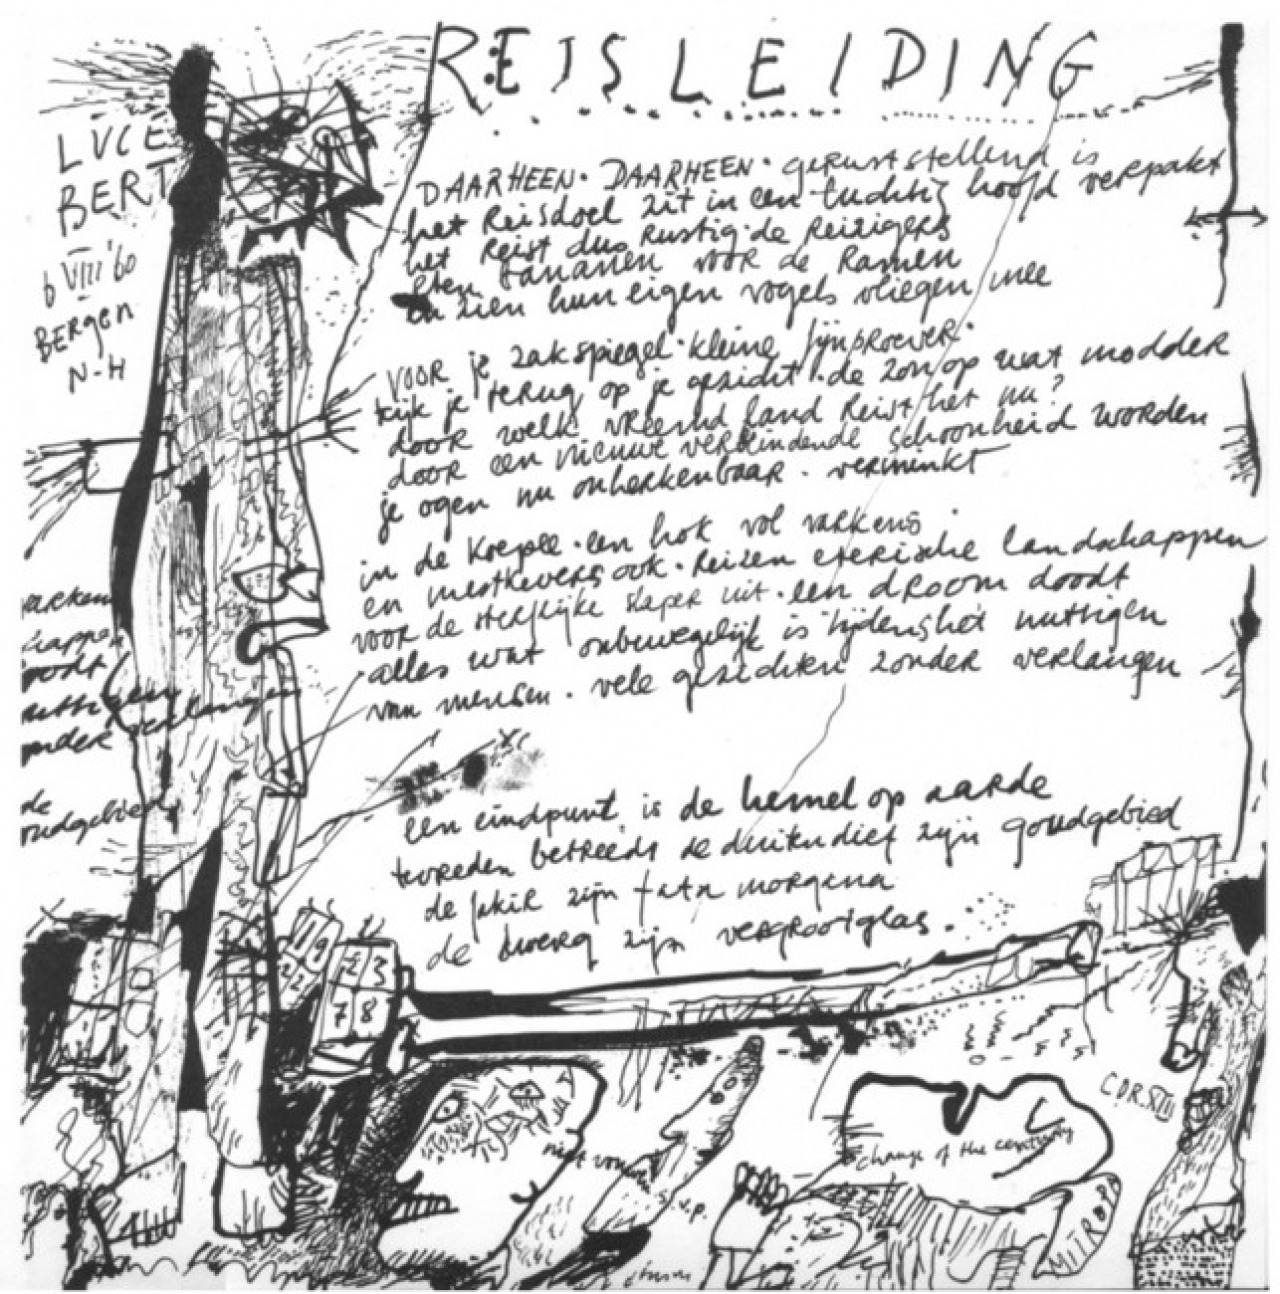 REISLEIDING
LUCE
BERT
6 VIII '60
BERGEN
N-H
DAARHEEN. DAARHEEN. geruststellend is
het Reisdoel zit in een luchtig hoofd verpakt
het reist dus rustig. de Reizigers
eten bananen voor de Ramen
en zien hun eigen vogels vliegen mee
VOOR je zakspiegel. kleine fijnproever.
kijk je terug op je gezicht. de zon op wat modder
door welk vreemd land Reist het nu?
door een nieuwe verblindende schoonheid worden
je ogen nu onherkenbaar. verminkt
in de koepee. een hok vol varkens.
en mestkevers ook. Reizen etherische landschappen
voor de sterfelijke slaper uit. een droom doodt
alles wat onbewegelijk is tijdens het nuttigen
van mensen. vele gezichten zonder verlangen
een eindpunt is de hemel op aarde
tevreden betreedt de duitendief zijn goudgebied
de fakir zijn fata morgana
de dwerg zijn vergrootglas.
arken
happen
oodt
uttigen
onder verlangen
de
oudgebied
19
22
23
78
niet
s.v.p.
change of the century
CDR XIII
MITROPA